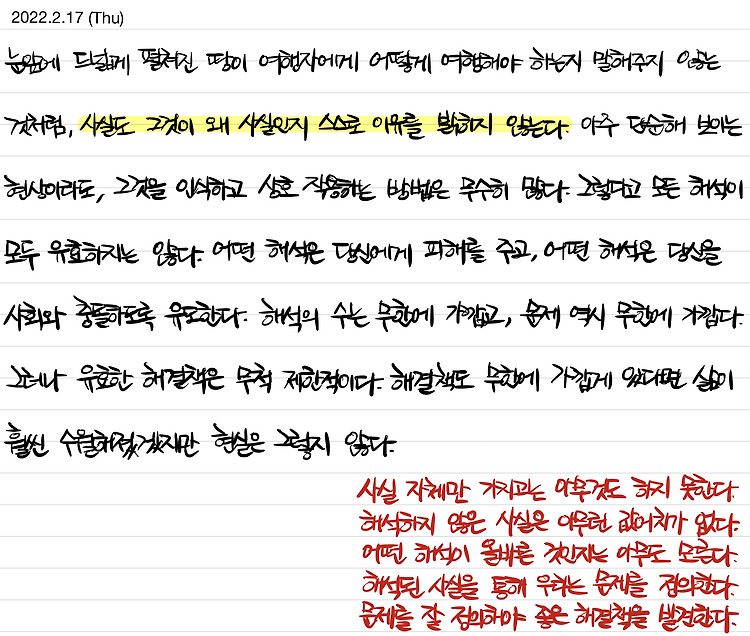 2022.2.17 (Thu)
눈앞에 드넓게 펼쳐진 땅이 여행자에게 어떻게 여행해야 하는지 말해주지 않는
것처럼, 사실도 그것이 왜 사실인지 스스로 이유를 밝히지 않는다. 아주 단순해 보이는
현상이라도, 그것을 인식하고 상호 작용하는 방법은 무수히 많다. 그렇다고 모든 해석이
모두 유효하지는 않다. 어떤 해석은 당신에게 피해를 주고, 어떤 해석은 당신을
사회와 충돌하도록 유도한다. 해석의 수는 무한에 가깝고, 문제 역시 무한에 가깝다.
그러나 유효한 해결책은 무척 제한적이다. 해결책도 무한에 가깝게 있다면 삶이
훨씬 수월해졌겠지만 현실은 그렇지 않다.
사실 자체만 가지고는 아무것도 하지 못한다.
해석하지 않은 사실은 아무런 값어치가 없다.
어떤 해석이 올바른 것인지는 아무도 모른다.
해석된 사실을 통해 우리는 문제를 정의한다.
문제를 잘 정의해야 좋은 해결책을 발견한다.